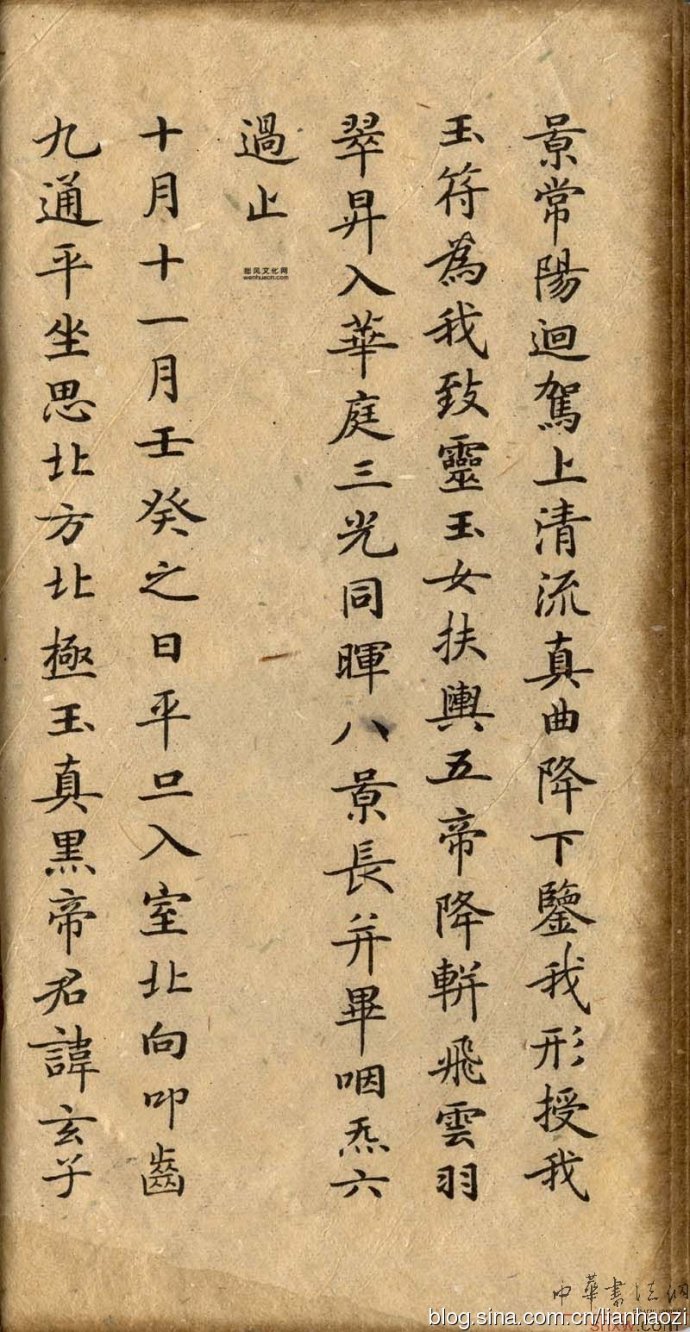 景常陽迴駕上清流真曲降下鑒我形授我
玉符為我致靈玉女扶輿五帝降軿飛雲羽
翠昇入華庭三光同暉八景長并畢咽炁六
過止
十月十一月壬癸之日平旦入室北向叩齒
九通平坐思北方北極玉真黑帝君諱玄子
wenhuacn.com
中華書法網
blog.sina.com.cn/lianhaozi